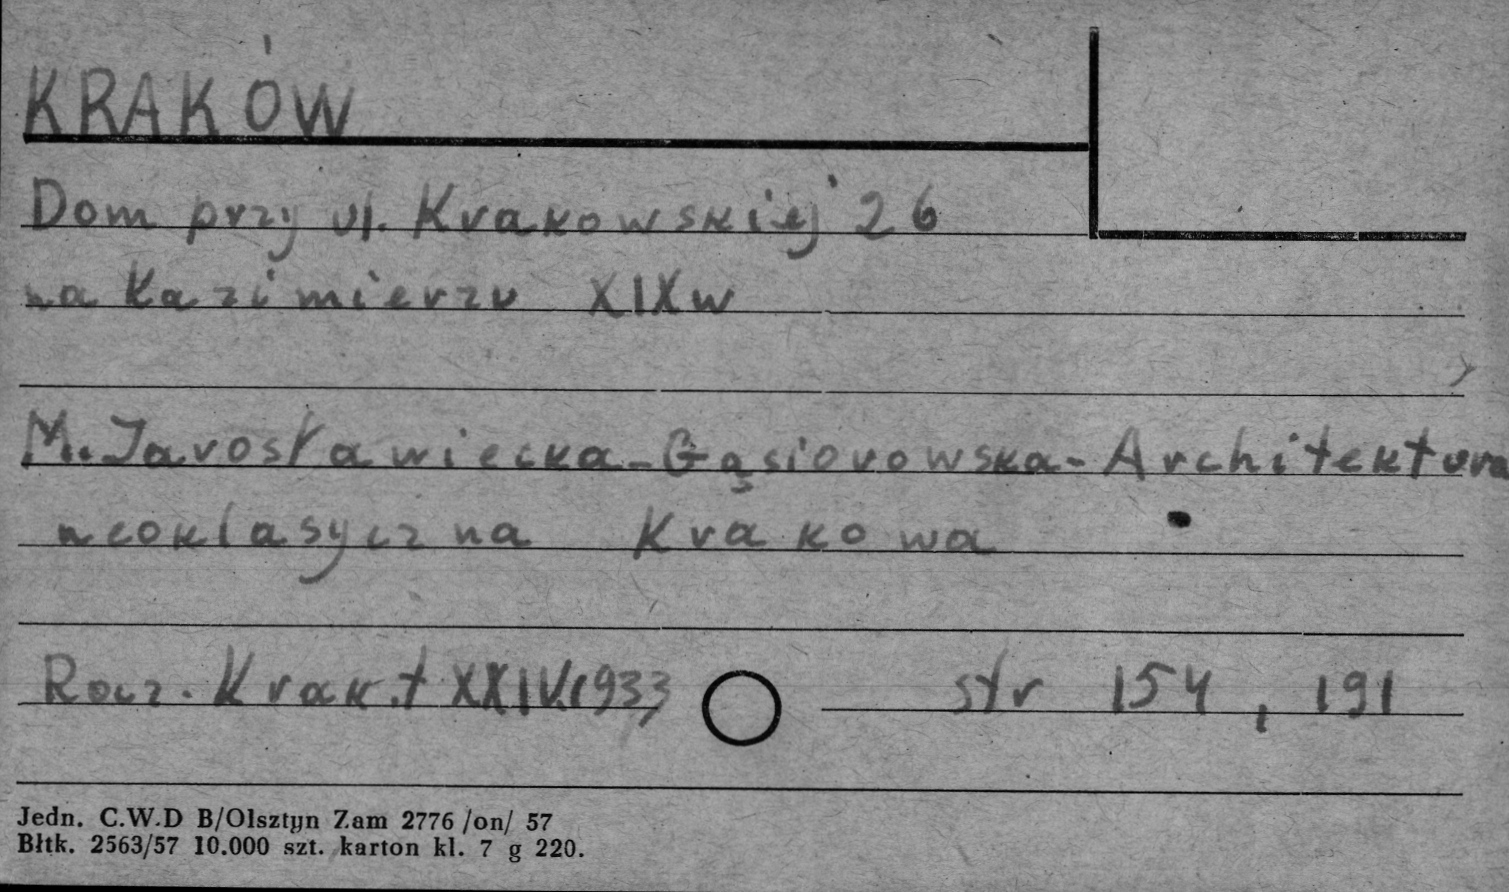 KRAKÓW
Dom przy ul. Krakowskiej 26
na Kazimierzu XIXw
M. Jarosławiecka-Gąsiorowska - Architektura
neoklasyczna Krakowa
Rocz. Krak. t XXIV.1933 str 154, 191
Jedn. C.W.D B/Olsztyn Zam 2776 /on/ 57
Błtk. 2563/57 10.000 szt. karton kl. 7 g 220.